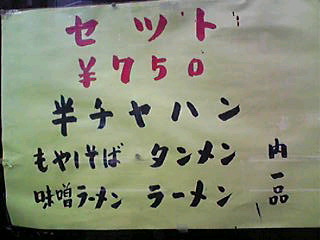 セット
¥750
半チャハン
もやしそば タンメン
味噌ラーメン ラーメン
内一品